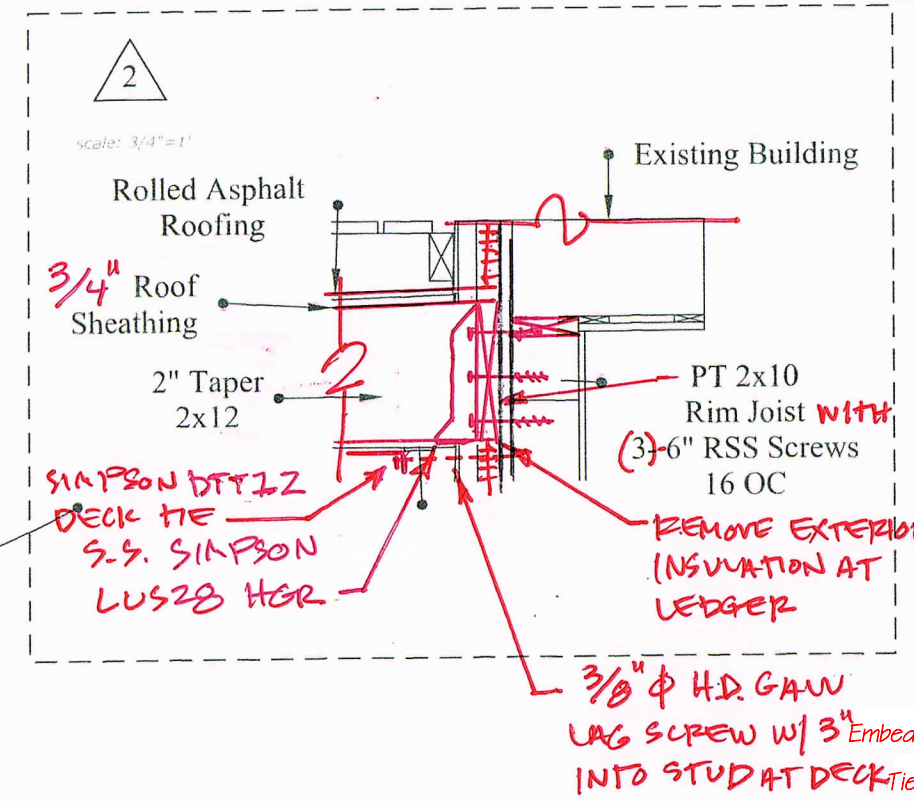 2
scale: 3/4"=1'
Existing Building
Rolled Asphalt
Roofing
3/4" Roof
Sheathing
2" Taper
2x12
PT 2x10
Rim Joist WITH
(3)-6" RSS Screws
16 OC
SIMPSON DTT2Z
DECK TIE
S.S. SIMPSON
LUS28 HGR
REMOVE EXTERIOR
INSULATION AT
LEDGER
3/8" Φ H.D. GALV
LAG SCREW W/ 3" Embed
INTO STUD AT DECK Tie